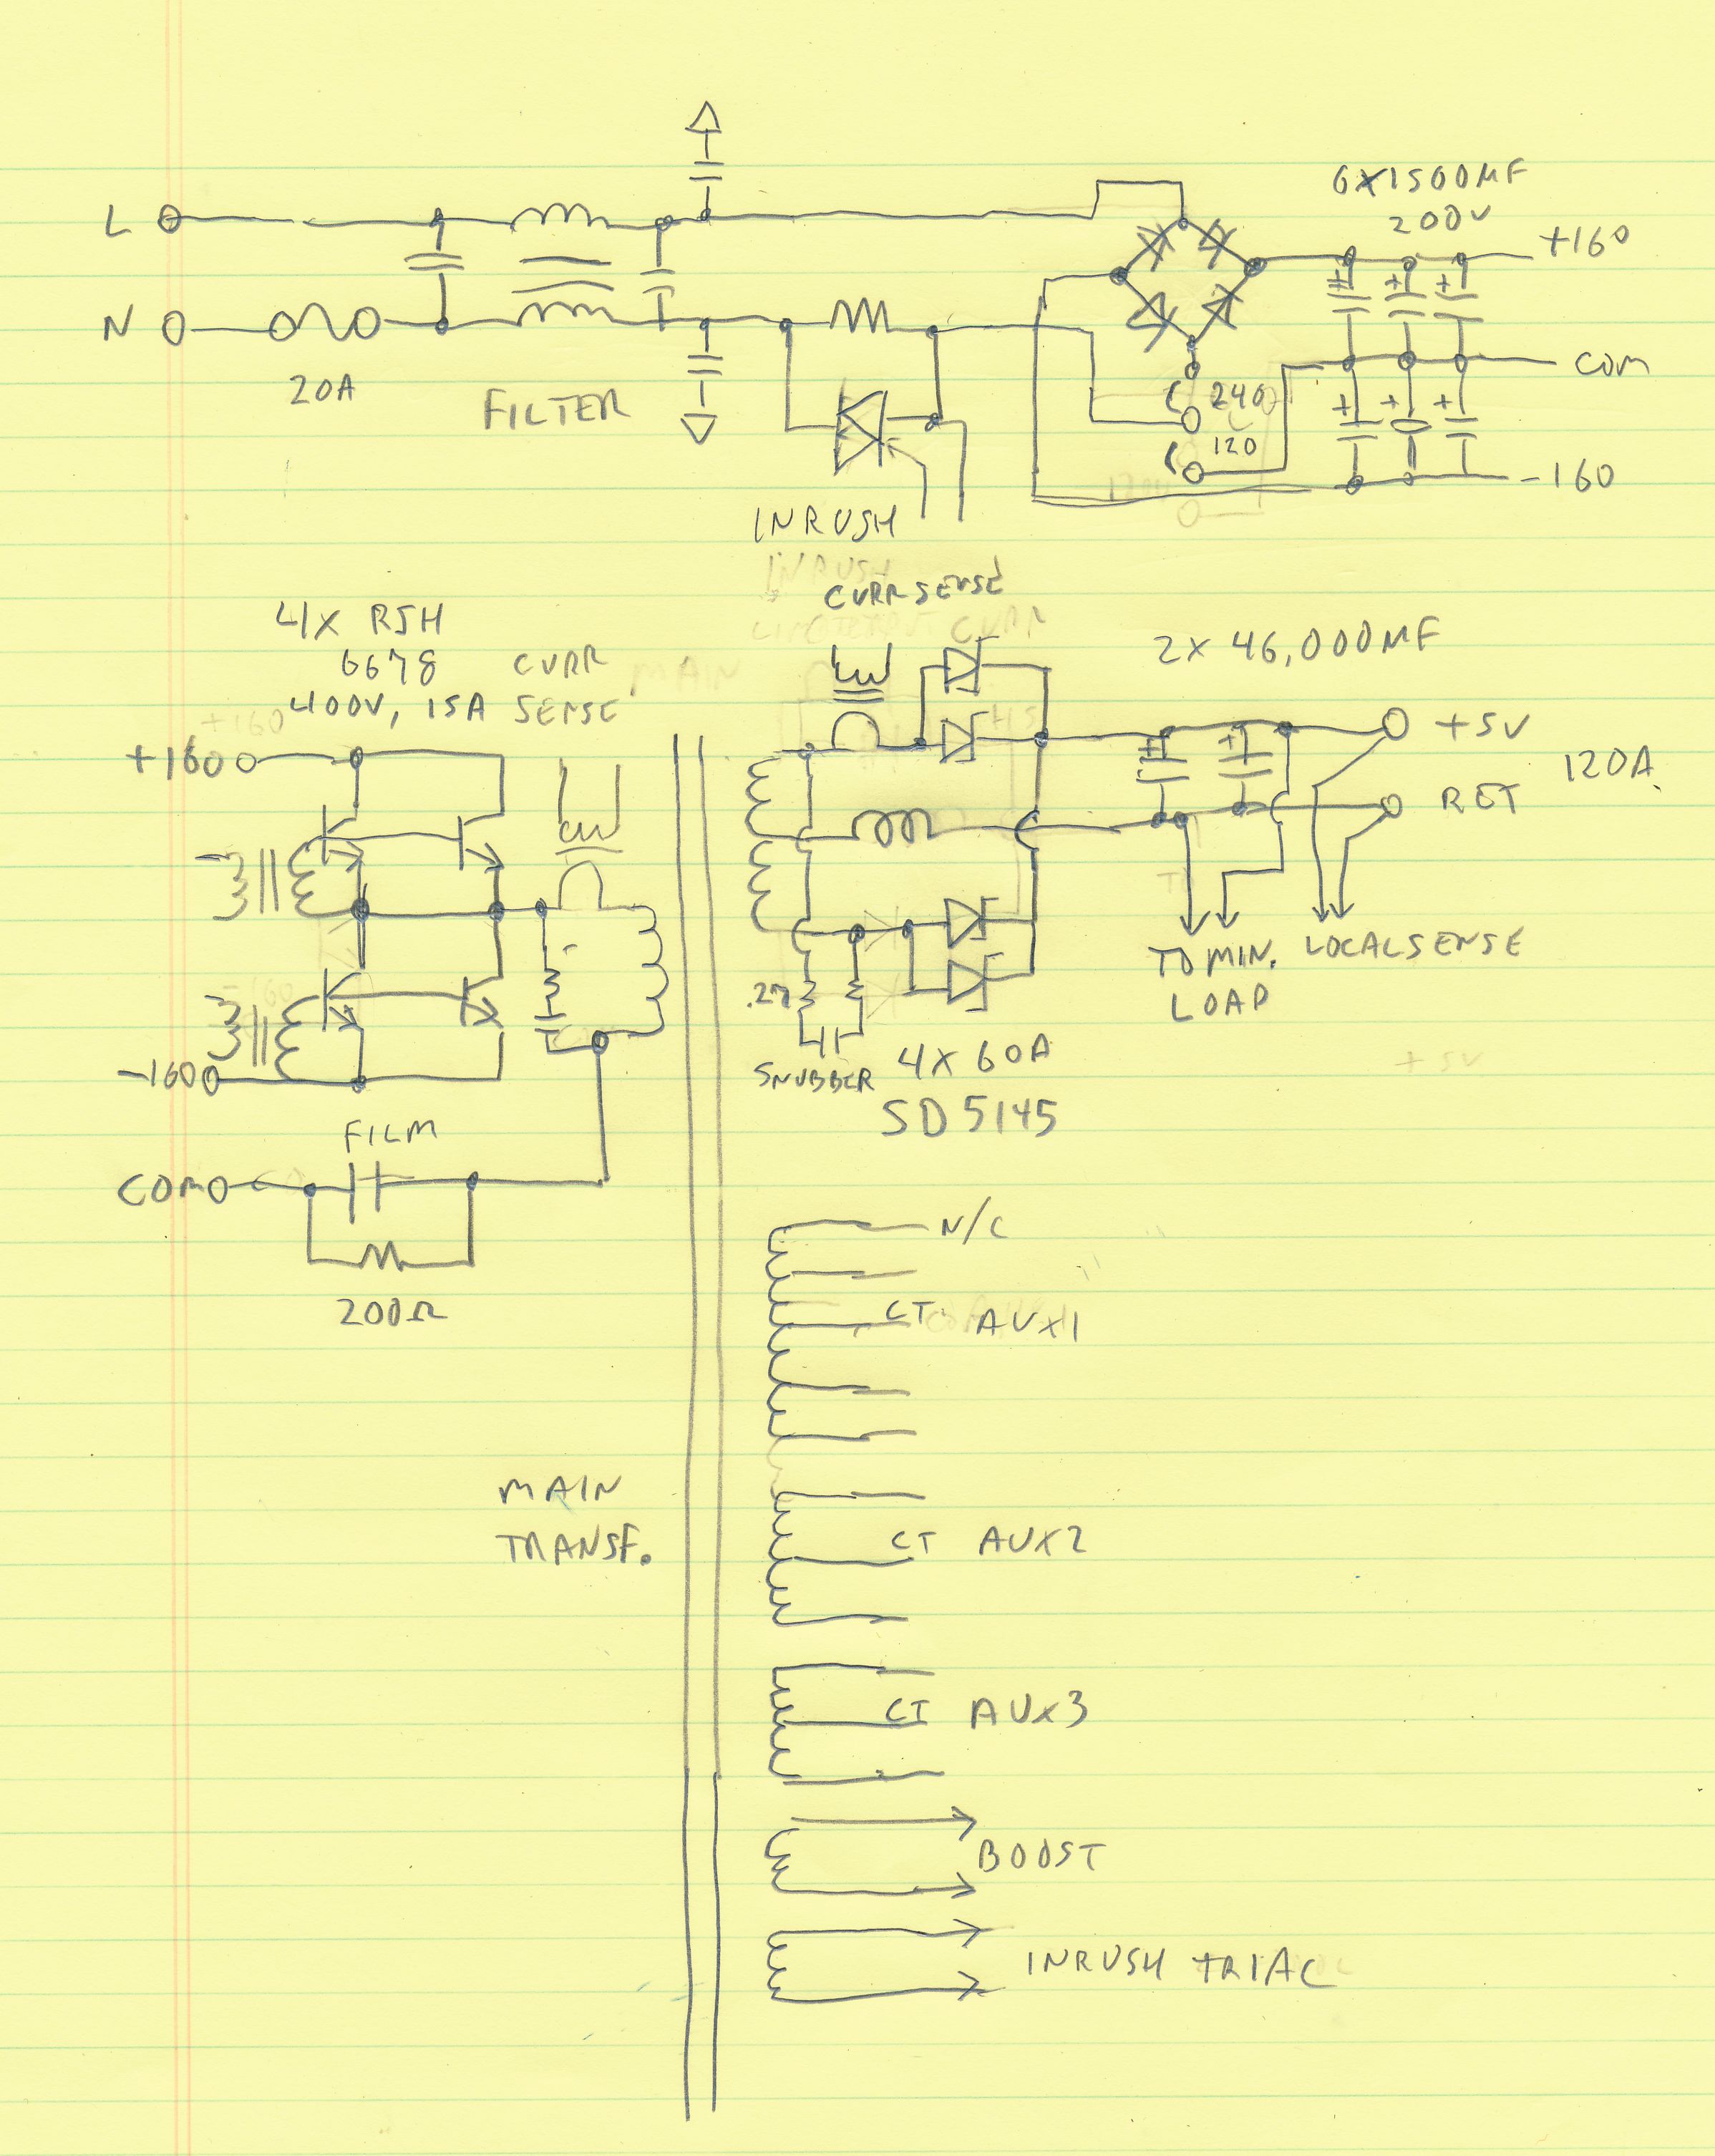 6X1500MF
200V
L
+160
N
20A
FILTER
COM
240
120
-160
INRUSH
INRUSH
CURR SENSE
4X RSH
6678
400V, 15A
CURR
SENSE
MAIN
2X 46,000MF
+160
+5V
120A
RET
TO MIN.
LOAD
LOCAL SENSE
.27
SNUBBER
4X 60A
SD5145
+5V
-160
FILM
COM
200Ω
N/C
CT
AUX1
MAIN
TRANSF.
CT AUX2
CT AUX3
BOOST
INRUSH TRIAC